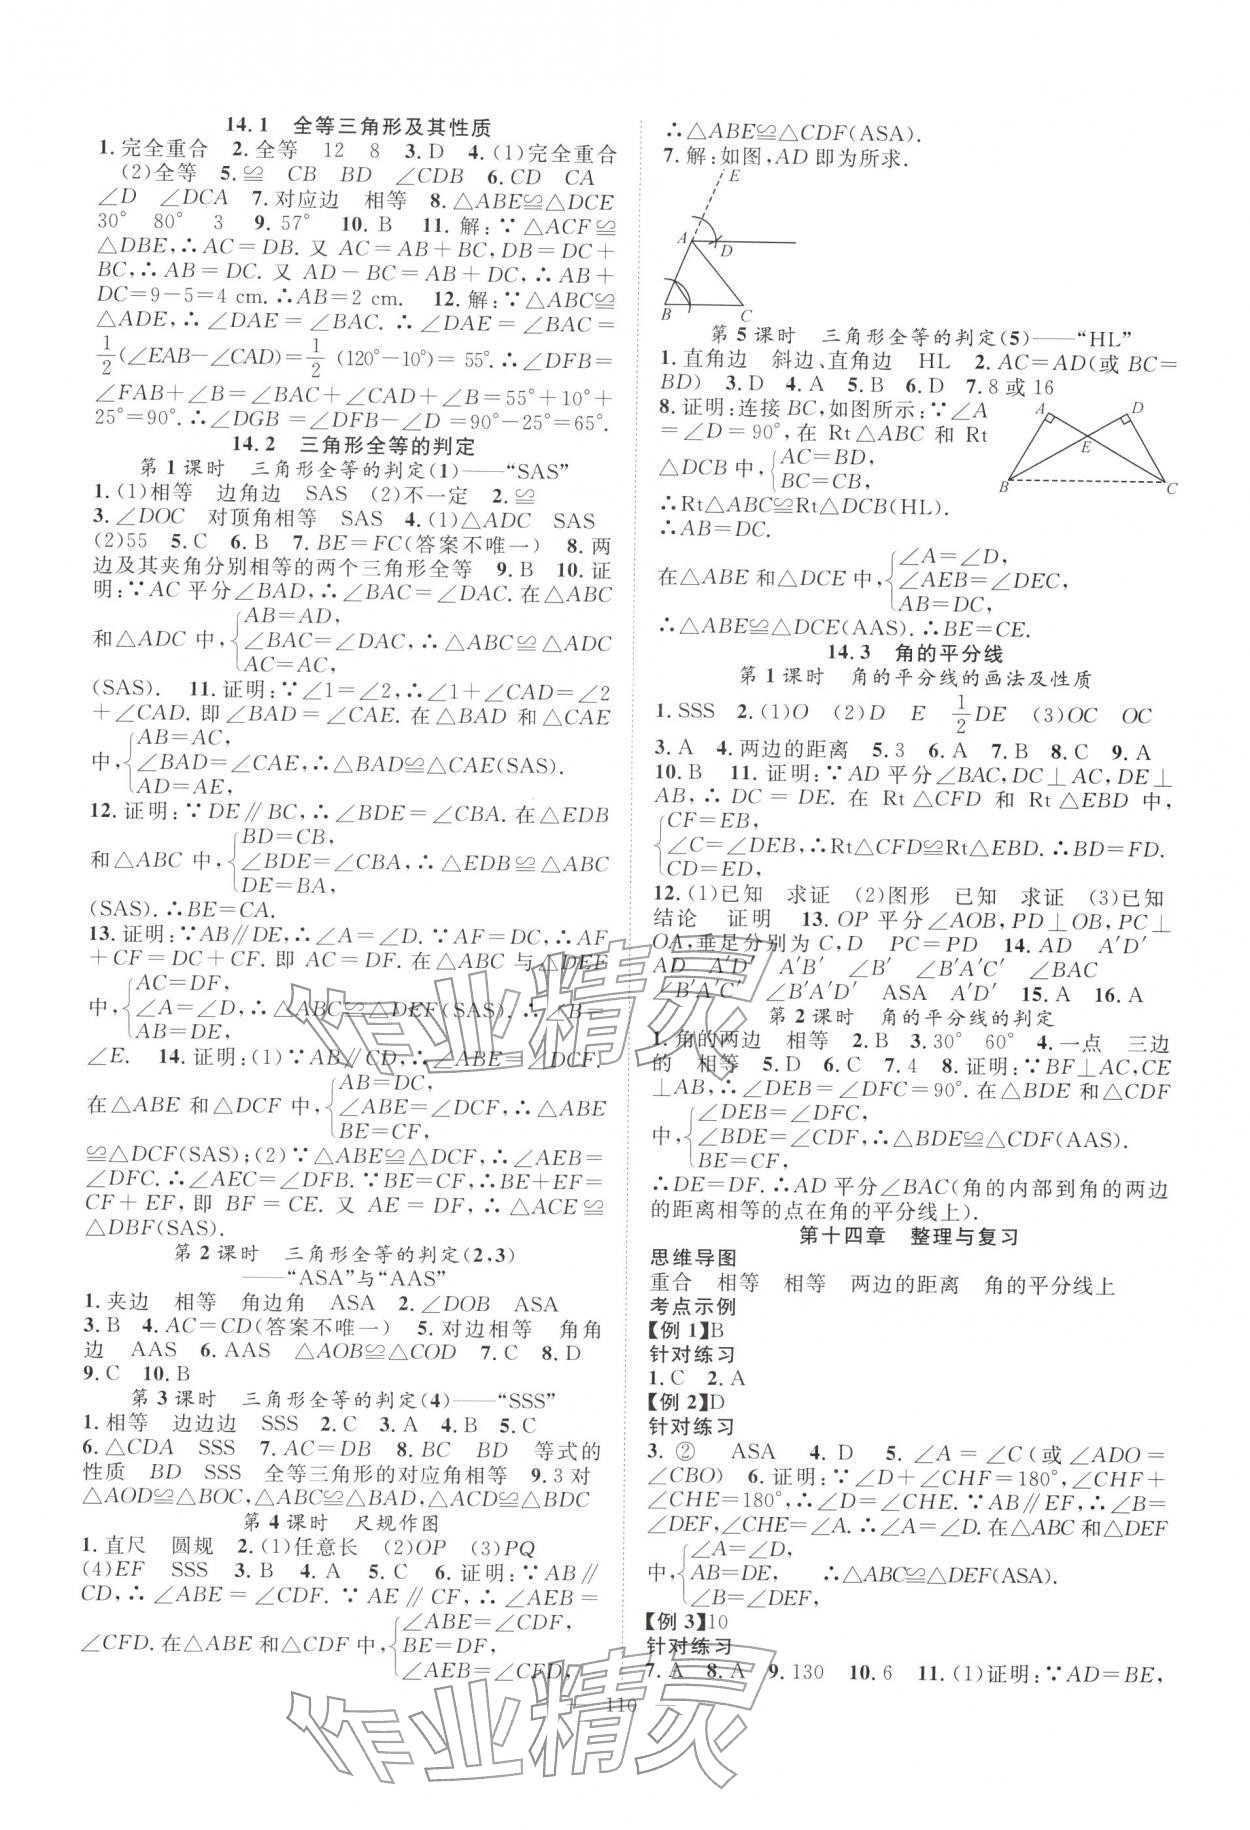 14.1 全等三角形及其性质
1.完全重合 2.全等 12 8 3.D 4.(1)完全重合
(2)全等 5.≌ CB BD ∠CDB 6.CD CA
∠D ∠DCA 7.对应边 相等 8.△ABE≌△DCE
30° 80° 3 9.57° 10.B 11.解:∵△ACF≌
△DBE,∴AC=DB.又 AC=AB+BC,DB=DC+
BC,∴AB=DC.又 AD-BC=AB+DC,∴AB+
DC=9-5=4 cm.∴AB=2 cm. 12.解:∵△ABC≌
△ADE,∴∠DAE=∠BAC.∴∠DAE=∠BAC=
1/2(∠EAB-∠CAD)=1/2(120°-10°)=55°.∴∠DFB=
∠FAB+∠B=∠BAC+∠CAD+∠B=55°+10°+
25°=90°.∴∠DGB=∠DFB-∠D=90°-25°=65°.
14.2 三角形全等的判定
第1课时 三角形全等的判定(1)——“SAS”
1.(1)相等 边角边 SAS (2)不一定 2.≌
3.∠DOC 对顶角相等 SAS 4.(1)△ADC SAS
(2)55 5.C 6.B 7.BE=FC(答案不唯一) 8.两
边及其夹角分别相等的两个三角形全等 9.B 10.证
明:∵AC平分∠BAD,∴∠BAC=∠DAC.在△ABC
AB=AD,
和△ADC中,{∠BAC=∠DAC,∴△ABC≌△ADC
AC=AC,
(SAS). 11.证明:∵∠1=∠2,∴∠1+∠CAD=∠2
+∠CAD.即∠BAD=∠CAE.在△BAD 和△CAE
AB=AC,
中,{∠BAD=∠CAE,∴△BAD≌△CAE(SAS).
AD=AE,
12.证明:∵DE∥BC,∴∠BDE=∠CBA.在△EDB
BD=CB,
和△ABC中,{∠BDE=∠CBA,∴△EDB≌△ABC
DE=BA,
(SAS).∴BE=CA.
13.证明:∵AB∥DE,∴∠A=∠D.∵AF=DC,∴AF
+CF=DC+CF.即 AC=DF.在△ABC与△DEF
AC=DF,
中,{∠A=∠D,∴△ABC≌△DEF(SAS).∴∠B=
AB=DE,
∠E. 14.证明:(1)∵AB∥CD,∴∠ABE=∠DCF.
AB=DC,
在△ABE和△DCF中,{∠ABE=∠DCF,∴△ABE
BE=CF,
≌△DCF(SAS);(2)∵△ABE≌△DCF,∴∠AEB=
∠DFC.∴∠AEC=∠DFB.∵BE=CF,∴BE+EF=
CF+EF,即 BF=CE.又 AE=DF,∴△ACE≌
△DBF(SAS).
第2课时 三角形全等的判定(2,3)
——“ASA”与“AAS”
1.夹边 相等 角边角 ASA 2.∠DOB ASA
3.B 4.AC=CD(答案不唯一) 5.对边相等 角角
边 AAS 6.AAS △AOB≌△COD 7.C 8.D
9.C 10.B
第3课时 三角形全等的判定(4)——“SSS”
1.相等 边边边 SSS 2.C 3.A 4.B 5.C
6.△CDA SSS 7.AC=DB 8.BC BD 等式的
性质 BD SSS 全等三角形的对应角相等 9.3对
△AOD≌△BOC,△ABC≌△BAD,△ACD≌△BDC
第4课时 尺规作图
1.直尺 圆规 2.(1)任意长 (2)OP (3)PQ
(4)EF SSS 3.B 4.A 5.C 6.证明:∵AB∥
CD,∴∠ABE=∠CDF.∵AE∥CF,∴∠AEB=
∠ABE=∠CDF,
∠CFD.在△ABE和△CDF中,{BE=DF,
∠AEB=∠CFD,
∴△ABE≌△CDF(ASA).
7.解:如图,AD即为所求.
E
A
D
B
C
第5课时 三角形全等的判定(5)——“HL”
1.直角边 斜边、直角边 HL 2.AC=AD(或BC=
BD) 3.D 4.A 5.B 6.D 7.8或16
8.证明:连接BC,如图所示:∵∠A
=∠D=90°,在 Rt△ABC 和 Rt
△DCB中,{AC=BD,
BC=CB,
∴Rt△ABC≌Rt△DCB(HL).
∴AB=DC.
A
D
E
B
C
∠A=∠D,
在△ABE和△DCE中,{∠AEB=∠DEC,
AB=DC,
∴△ABE≌△DCE(AAS).∴BE=CE.
14.3 角的平分线
第1课时 角的平分线的画法及性质
1.SSS 2.(1)O (2)D E 1/2DE (3)OC OC
3.A 4.两边的距离 5.3 6.A 7.B 8.C 9.A
10.B 11.证明:∵AD平分∠BAC,DC⊥AC,DE⊥
AB,∴DC=DE.在 Rt△CFD 和 Rt△EBD 中,
CF=EB,
{∠C=∠DEB,∴Rt△CFD≌Rt△EBD.∴BD=FD.
CD=ED,
12.(1)已知 求证 (2)图形 已知 求证 (3)已知
结论 证明 13.OP平分∠AOB,PD⊥OB,PC⊥
OA,垂足分别为C,D PC=PD 14.AD A′D′
AD A′D′ A′B′ ∠B′ ∠B′A′C′ ∠BAC
∠B′A′C′ ∠B′A′D′ ASA A′D′ 15.A 16.A
第2课时 角的平分线的判定
1.角的两边 相等 2.B 3.30° 60° 4.一点 三边
的 相等 5.D 6.C 7.4 8.证明:∵BF⊥AC,CE
⊥AB,∴∠DEB=∠DFC=90°.在△BDE和△CDF
∠DEB=∠DFC,
中,{∠BDE=∠CDF,∴△BDE≌△CDF(AAS).
BE=CF,
∴DE=DF.∴AD平分∠BAC(角的内部到角的两边
的距离相等的点在角的平分线上).
第十四章 整理与复习
思维导图
重合 相等 相等 两边的距离 角的平分线上
考点示例
【例1】B
针对练习
1.C 2.A
【例2】D
针对练习
3.② ASA 4.D 5.∠A=∠C(或∠ADO=
∠CBO) 6.证明:∵∠D+∠CHF=180°,∠CHF+
∠CHE=180°,∴∠D=∠CHE.∵AB∥EF,∴∠B=
∠DEF,∠CHE=∠A.∴∠A=∠D.在△ABC和△DEF
∠A=∠D,
中,{AB=DE, ∴△ABC≌△DEF(ASA).
∠B=∠DEF,
【例3】10
针对练习
7.A 8.A 9.130 10.6 11.(1)证明:∵AD=BE,
110
作业精灵
作业精灵